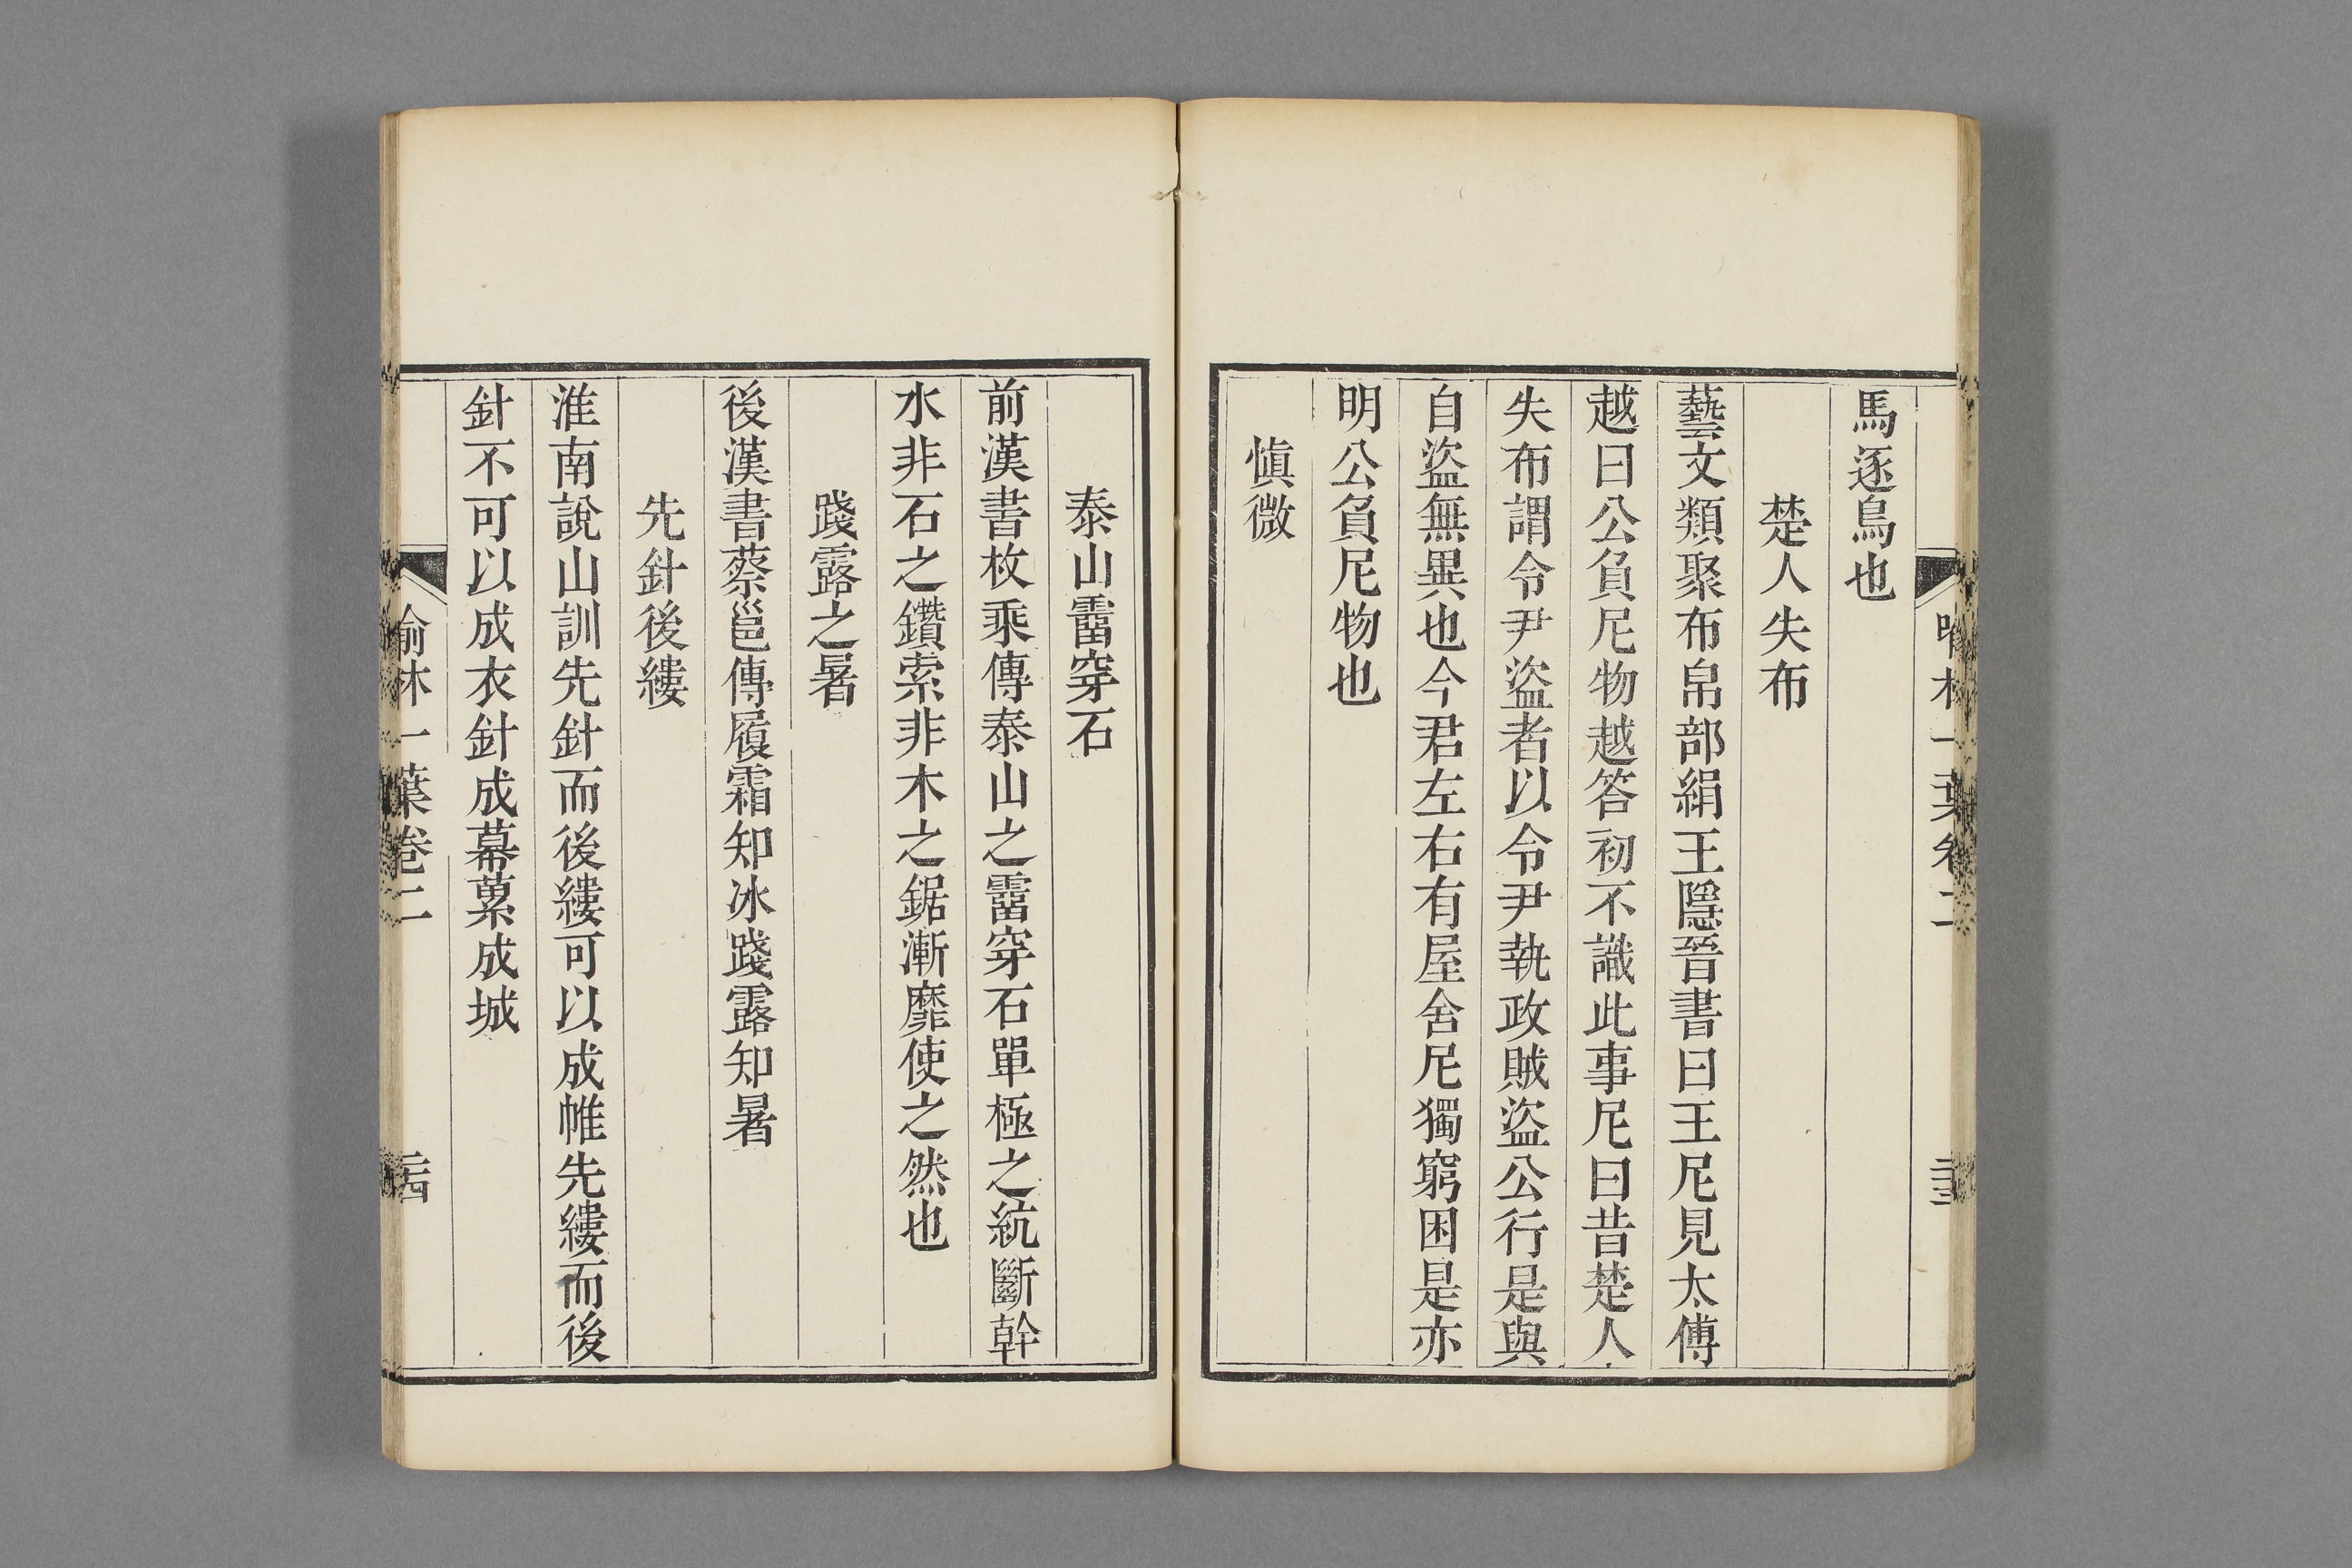 馬逐鳥也
楚人失布
藝文類聚布帛部絹王隱晉書曰王尼見太傅
越曰公負尼物越答初不識此事尼曰昔楚人
失布謂令尹盜者以令尹執政賊盜公行是與
自盜無異也今君左右有屋舍尼獨窮困是亦
明公負尼物也
愼微
泰山霤穿石
前漢書枚乘傳泰山之霤穿石單極之統斷幹
水非石之鑽索非木之鋸漸靡使之然也
踐露之暑
後漢書蔡邕傳履霜知冰踐露知暑
先針後縷
淮南說山訓先針而後縷可以成帷先縷而後
針不可以成衣針成幕蔂成城
喻林一葉卷二
二十四